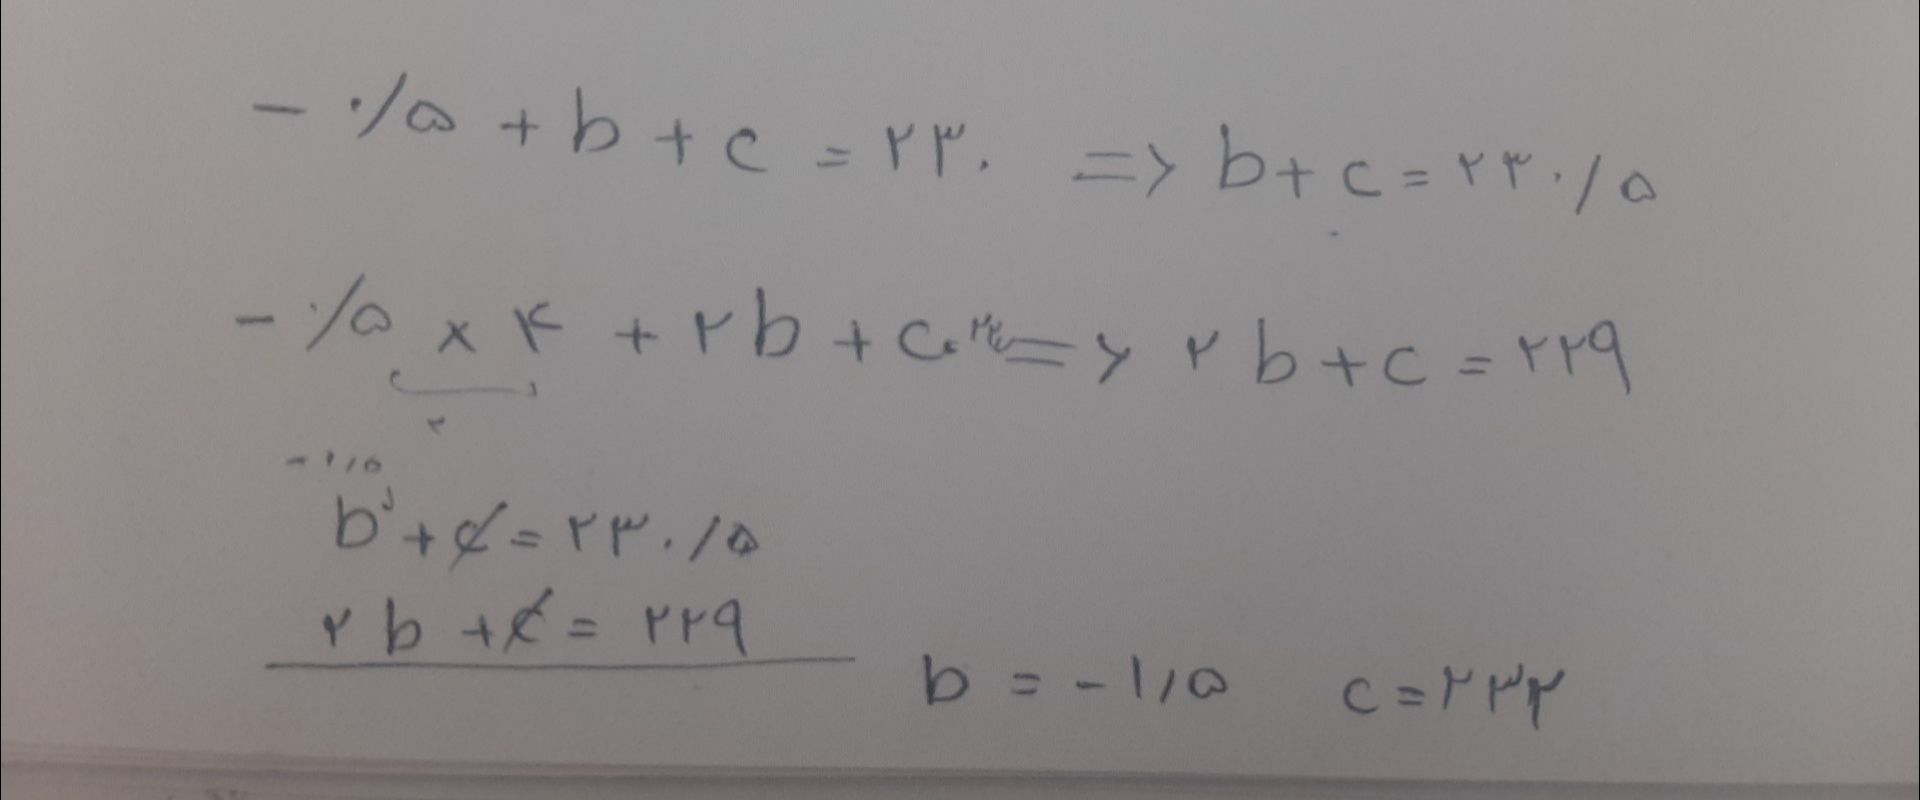 - ۰/۵ + b + c = ۲۳۰ => b + c = ۲۳۰/۵
- ۰/۵ × ۴ + ۲b + c => ۲b + c = ۲۲۹
۲
- ۱/۵
b + c = ۲۳۰/۵
۲b + c = ۲۲۹
b = - ۱/۵ c = ۲۳۲